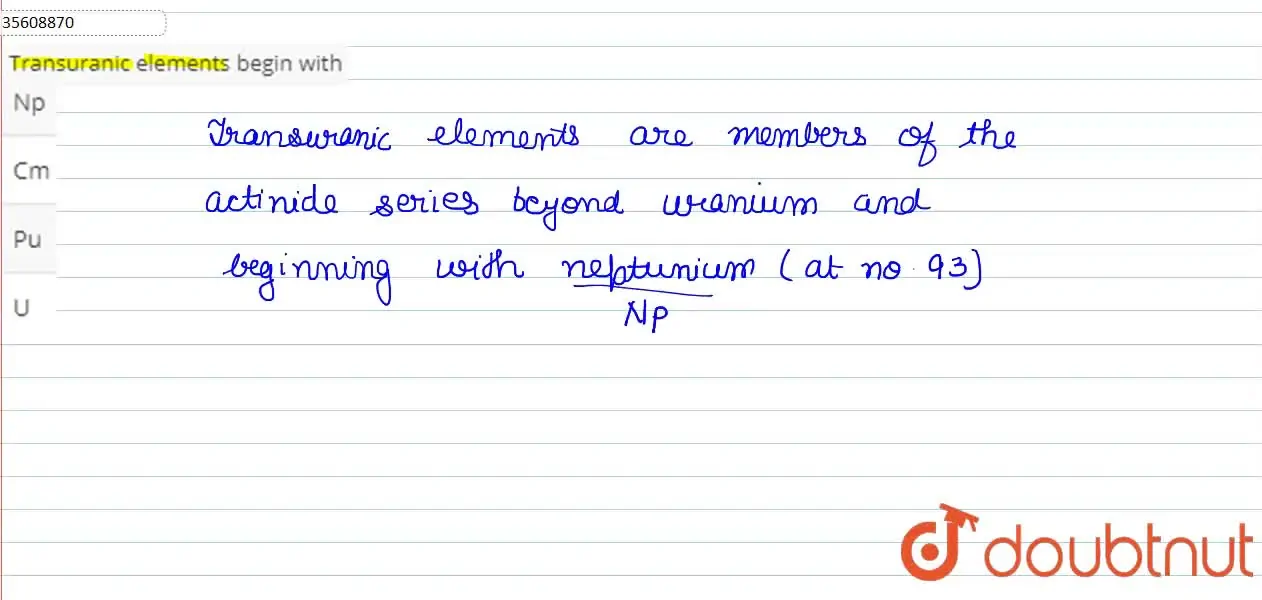 35608870
Transuranic elements begin with
Np
Cm
Pu
U
Transuranic elements are members of the
actinide series beyond uranium and
beginning with neptunium (at no. 93)
Np
doubtnut